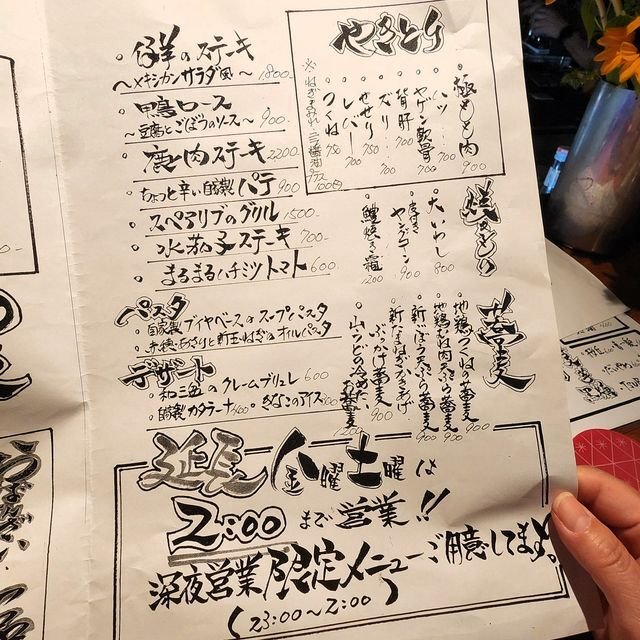 仔羊のステーキ
～メキシカンサラダ風～ 1800-
鴨ロース
～豆腐とごぼうのソース～ 900-
鹿もも肉ステキ 2200-
ちょっと辛い自家製パテ 900
スペアリブのグリル 1500-
水茄子ステーキ 700-
まるまるハチミツトマト 600-
パスタ
自家製ブイヤベースのスープパスタ
あさりと新玉ねぎのオイルパスタ
デザート
和三盆のクレームブリュレ 600
自家製カタラーナ 400 きなこのアイス 400
やきとり
極もも肉 900
ハツ 700
ヤゲン軟骨 700
背肝 700
ズリ 700
せせり 750
レバー 700
つくね 750
大いわし 800
皮付きヤングコーン 900
鱧焼き霜 1200
蕎麦
地鶏つくねの蕎麦 900
地鶏むね肉天ぷら蕎麦 900
新ごぼう天ぷら蕎麦 900
新たまねぎかきあげ
ぶっかけ蕎麦 900
山うどの冷たいお蕎麦 1200
延長 金曜土曜は
2:00 まで営業!!
深夜営業限定メニューご用意してます。
(23:00～2:00)